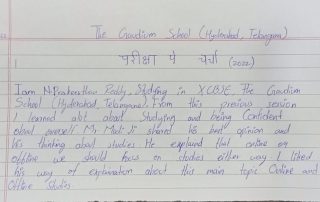 The Gaudium School (Hyderabad, Telangana)
परीक्षा पे चर्चा (2022)
I am N. Prakarsthau Reddy, Studying in X CBSE, The Gaudium
School (Hyderabad, Telangana). From this previous session
I learned alot about Studying and being Confident
about oneself. Mr. Modi Ji shared his best opinion and
his thinking about studies. He explained that online or
offline we should focus on studies either way. I liked
his way of explanation about this main topic Online and
Offline Studies.